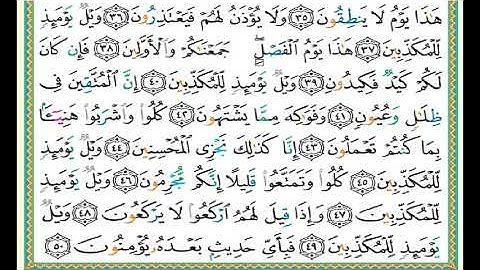 هَٰذَا يَوْمُ لَا يَنطِقُونَ ٣٥ وَلَا يُؤْذَنُ لَهُمْ فَيَعْتَذِرُونَ ٣٦ وَيْلٌ يَوْمَئِذٍ
لِّلْمُكَذِّبِينَ ٣٧ هَٰذَا يَوْمُ الْفَصْلِ ۖ جَمَعْنَاكُمْ وَالْأَوَّلِينَ ٣٨ فَإِن كَانَ
لَكُمْ كَيْدٌ فَكِيدُونِ ٣٩ وَيْلٌ يَوْمَئِذٍ لِّلْمُكَذِّبِينَ ٤٠ إِنَّ الْمُتَّقِينَ فِي
ظِلَالٍ وَعُيُونٍ ٤١ وَفَوَاكِهَ مِمَّا يَشْتَهُونَ ٤٢ كُلُوا وَاشْرَبُوا هَنِيئًا
بِمَا كُنتُمْ تَعْمَلُونَ ٤٣ إِنَّا كَذَٰلِكَ نَجْزِي الْمُحْسِنِينَ ٤٤ وَيْلٌ يَوْمَئِذٍ
لِّلْمُكَذِّبِينَ ٤٥ كُلُوا وَتَمَتَّعُوا قَلِيلًا إِنَّكُم مُّجْرِمُونَ ٤٦ وَيْلٌ يَوْمَئِذٍ
لِّلْمُكَذِّبِينَ ٤٧ وَإِذَا قِيلَ لَهُمُ ارْكَعُوا لَا يَرْكَعُونَ ٤٨ وَيْلٌ
يَوْمَئِذٍ لِّلْمُكَذِّبِينَ ٤٩ فَبِأَيِّ حَدِيثٍ بَعْدَهُ يُؤْمِنُونَ ٥٠